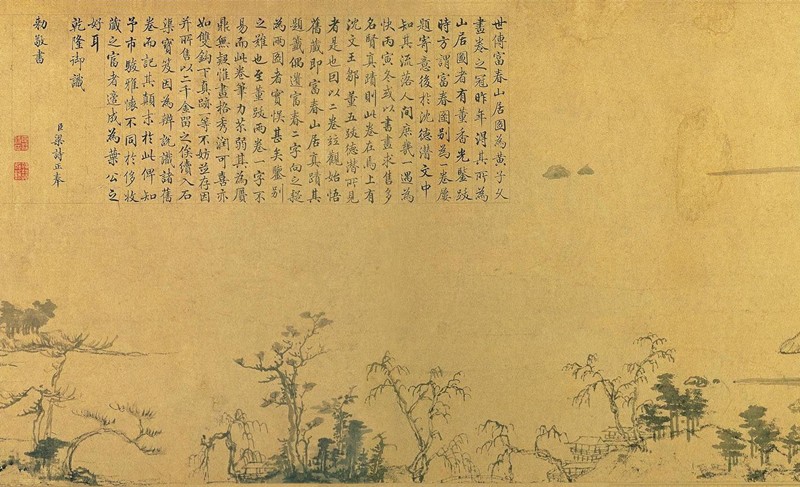 世傳富春山居圖為黃子久
畫卷之冠昨年得其所為
山居圖者有董香光鑒跋
時方謂富春圖別為一卷屢
題寄意後於沈德潛文中
知其流落人間庶幾一遇為
快丙寅冬或以書畫求售多
名賢真蹟則此卷在焉上有
沈文王鄒董五跋德潛所見
者是也因以二卷並觀始悟
舊藏即富春山居真蹟其
題籤偶遺富春二字向之疑
為兩圖者實悞甚矣鑒別
之難也至董跋兩卷一字不
易而此卷筆力苶弱其為贗
鼎無疑惟畫格秀潤可喜亦
如雙鉤下真跡一等不妨並存因
并所售以二千金留之俟續入石
渠寶笈因為辨說識諸舊
卷而記其顛末於此俾知
予市駿雅懷不同於侈收
藏之富者適成為葉公之
好耳
乾隆御識
臣梁詩正奉
勅敬書